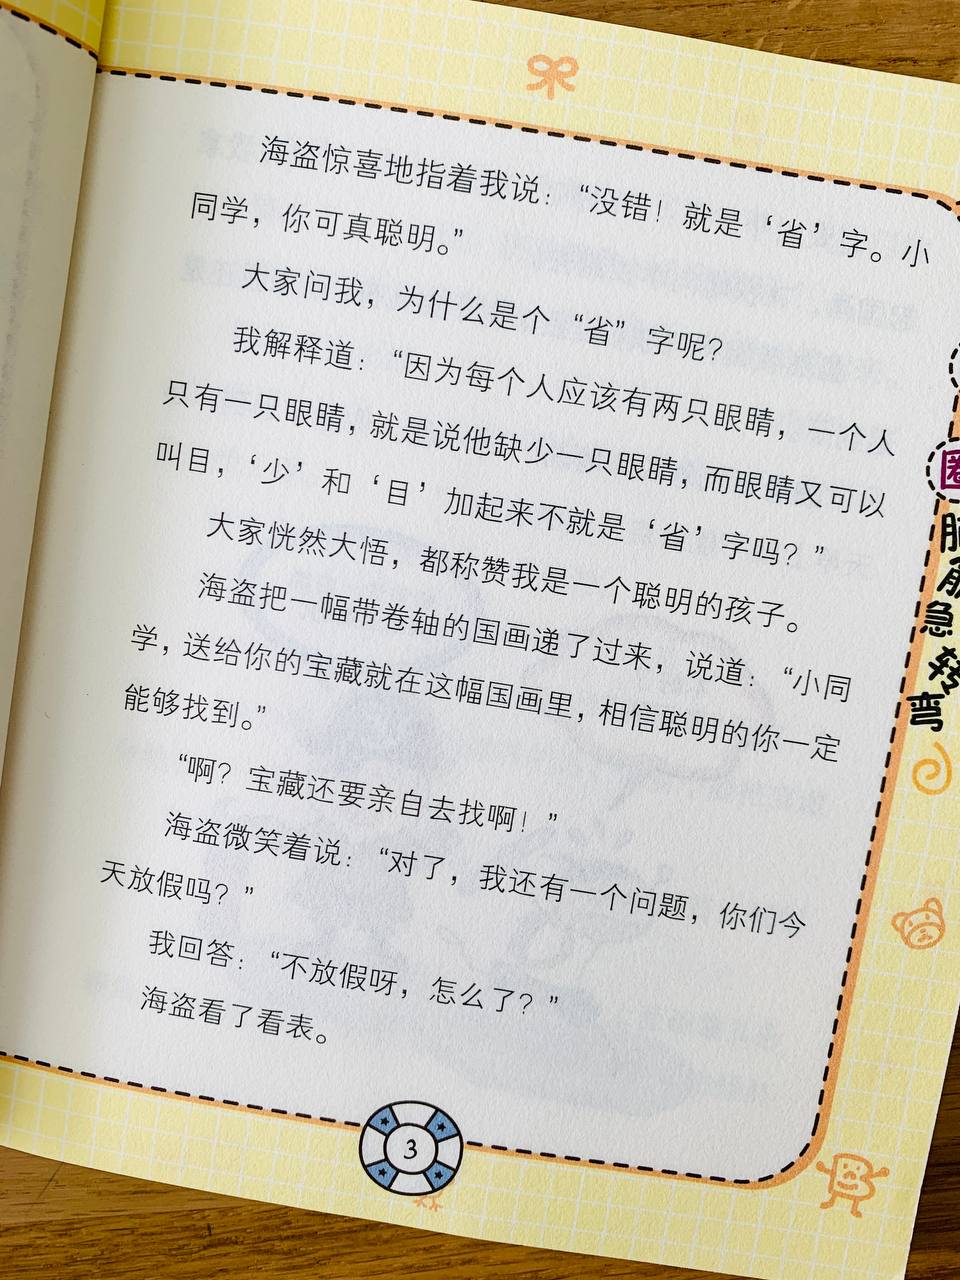 海盗惊喜地指着我说：“没错！就是‘省’字。小
同学，你可真聪明。”
大家问我，为什么是个“省”字呢？
我解释道：“因为每个人应该有两只眼睛，一个人
只有一只眼睛，就是说他缺少一只眼睛，而眼睛又可以
叫目，‘少’和‘目’加起来不就是‘省’字吗？”
大家恍然大悟，都称赞我是一个聪明的孩子。
海盗把一幅带卷轴的国画递了过来，说道：“小同
学，送给你的宝藏就在这幅国画里，相信聪明的你一定
能够找到。”
“啊？宝藏还要亲自去找啊！”
海盗微笑着说：“对了，我还有一个问题，你们今
天放假吗？”
我回答：“不放假呀，怎么了？”
海盗看了看表。
3
脑筋急转弯